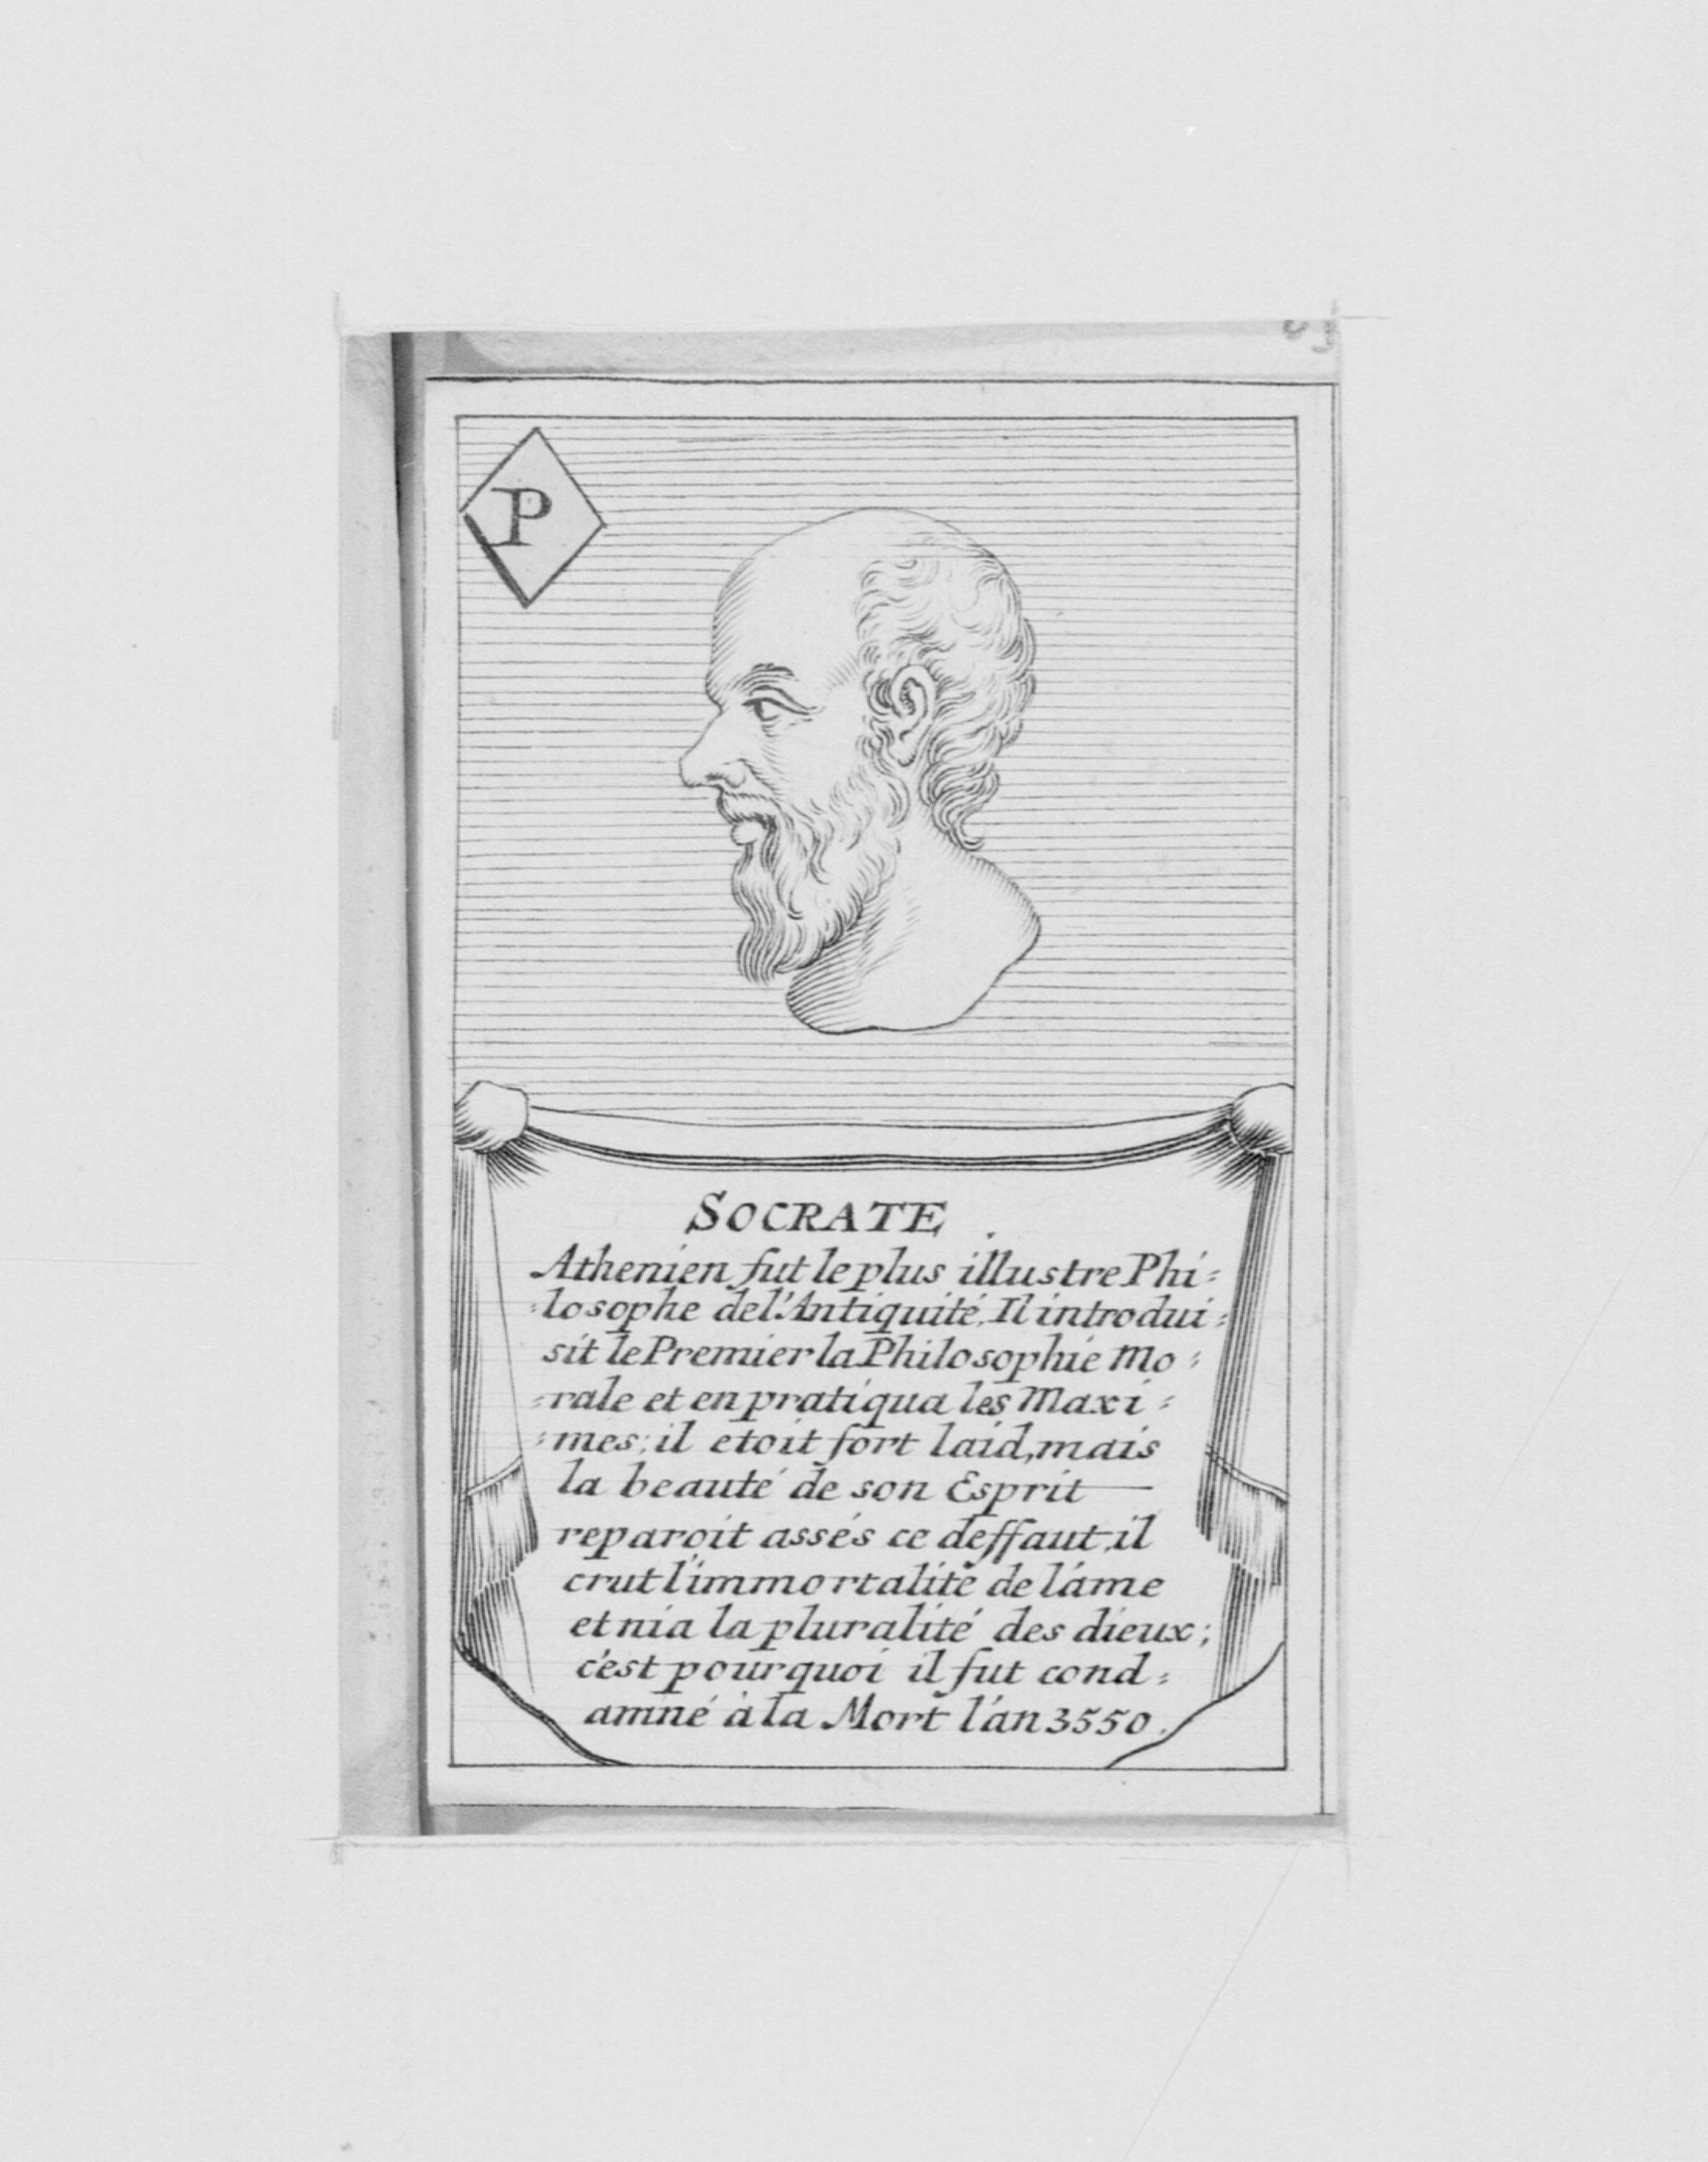 P
SOCRATE
Athenien fut le plus illustre Phi=
=losophe de l'Antiquité. Il introdui=
sit le Premier la Philosophie Mo=
=rale et en pratiqua les Maxi=
=mes; il etoit fort laid, mais
la beauté de son Esprit —
reparoit assés ce deffaut, il
crut l'immortalité de l'ame
et nia la pluralité des dieux;
c'est pourquoi il fut cond=
amné à la Mort l'an 3550.